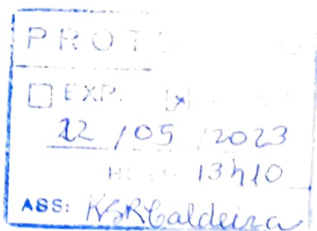 PROT
EXP.
22 / 05 / 2023
13h10
ASS: KBRCaldeira